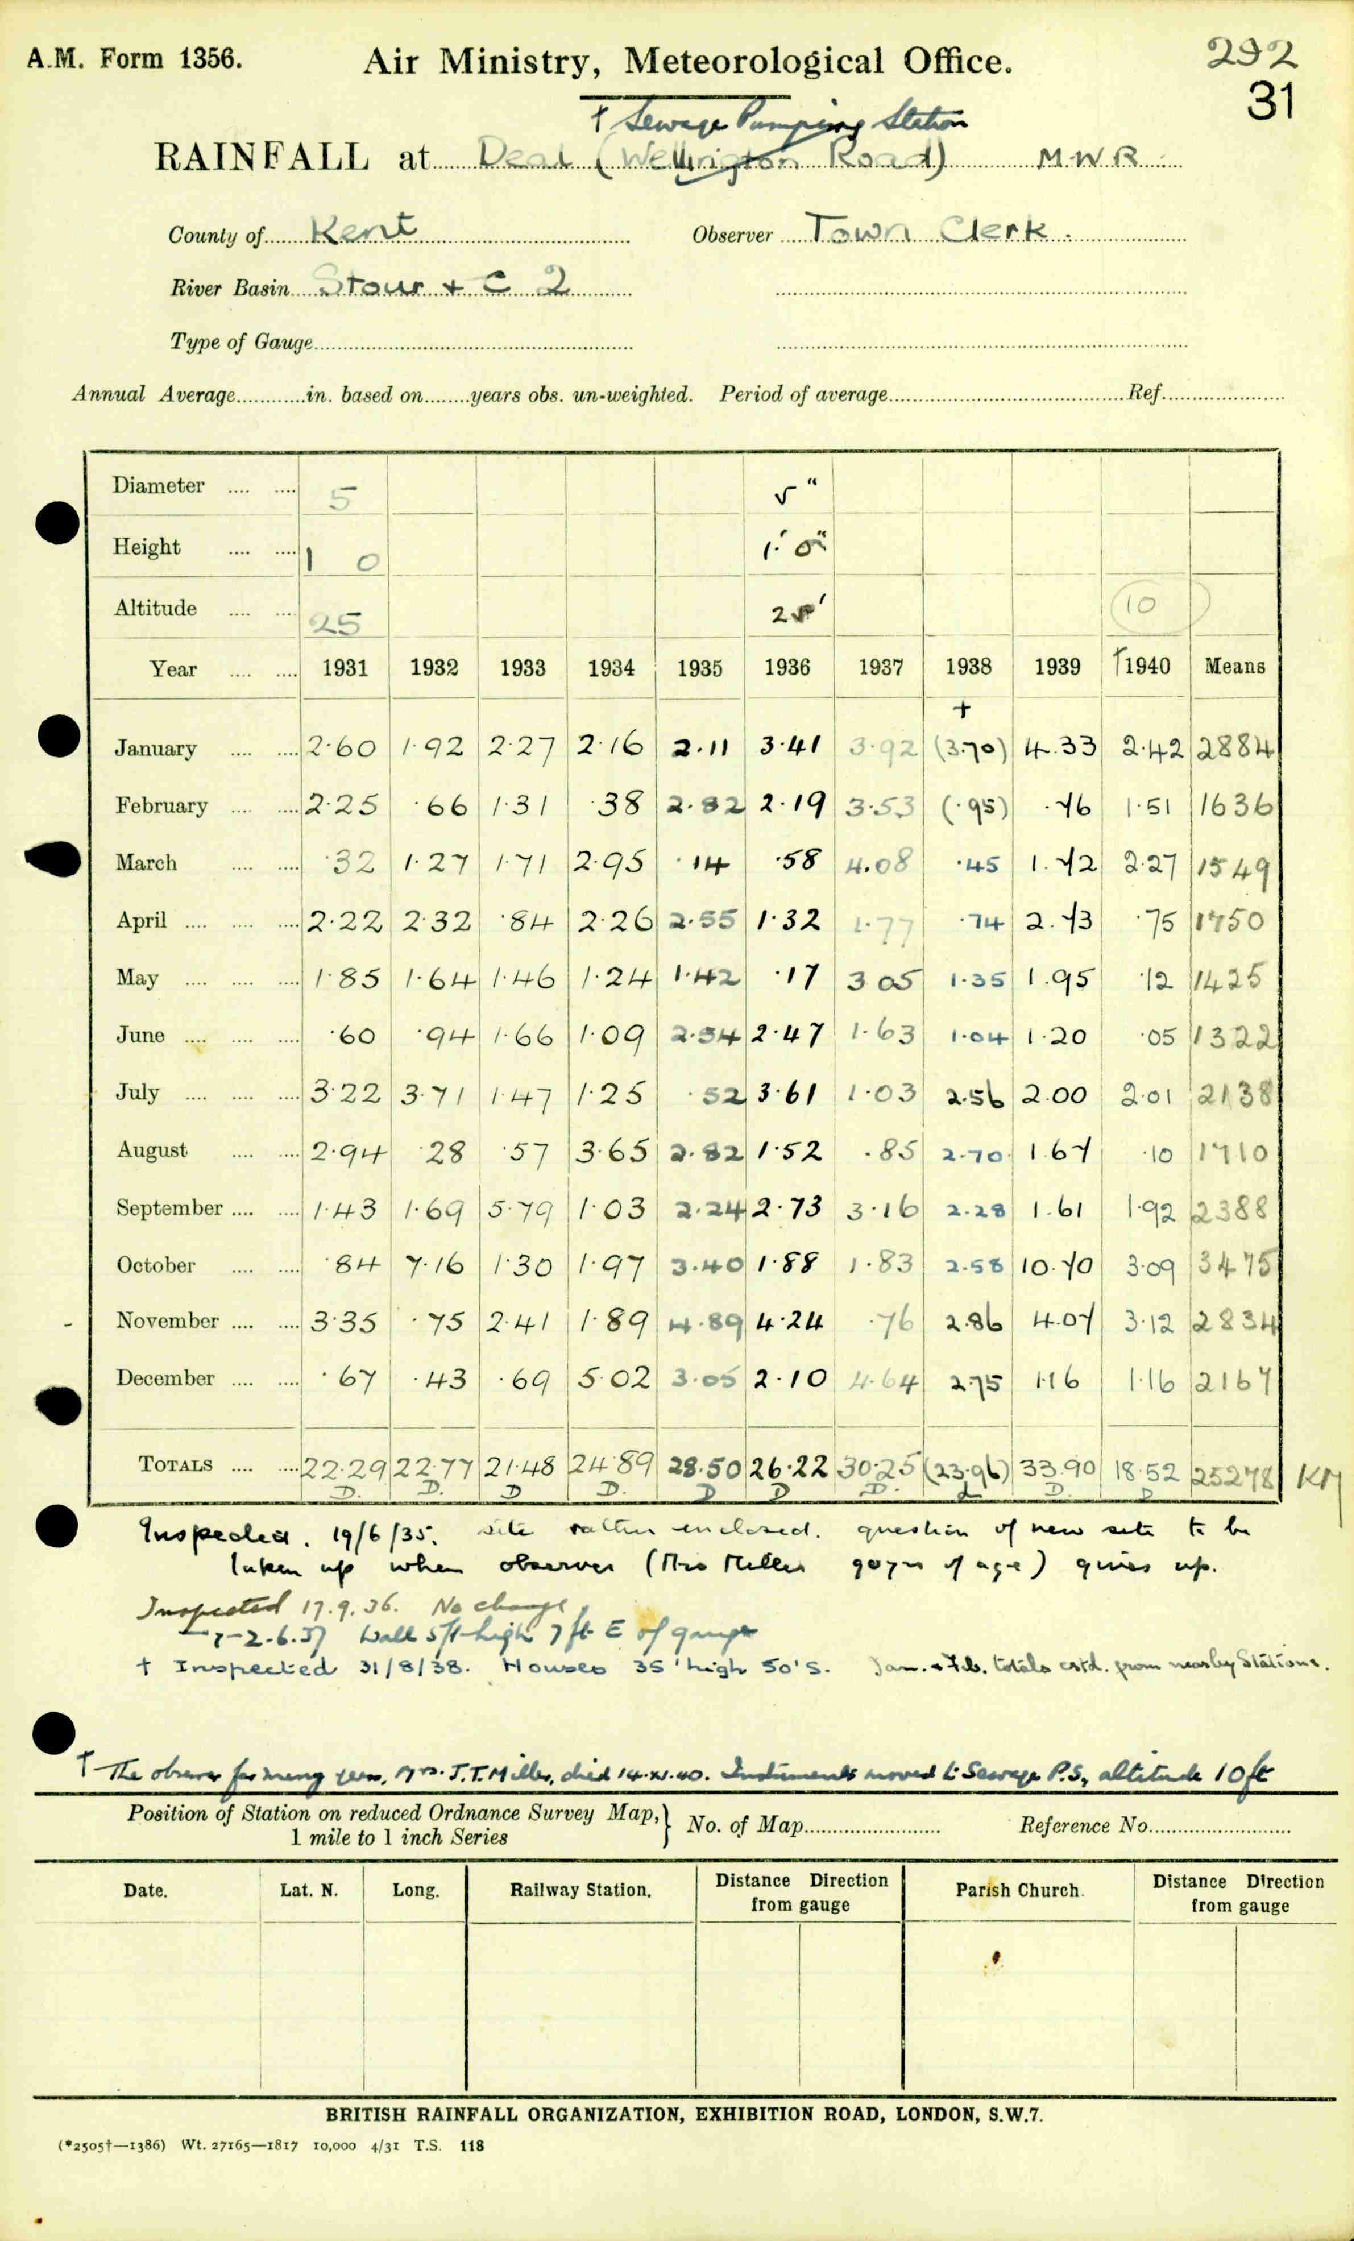 A.M. Form 1356.
Air Ministry, Meteorological Office.
292
31
† Sewage Pumping Station
RAINFALL at Deal (Wellington Road) MWR
County of Kent Observer Town Clerk.
River Basin Stour + C 2
Type of Gauge
Annual Average in. based on years obs. un-weighted. Period of average Ref.
Diameter 5 5"
Height 1 0 1' 0"
Altitude 25 25' (10)
Year 1931 1932 1933 1934 1935 1936 1937 1938 1939 †1940 Means
+
January 2·60 1·92 2·27 2·16 2·11 3·41 3·92 (3·70) 4·33 2·42 2884
February 2·25 ·66 1·31 ·38 2·82 2·19 3·53 (·95) ·76 1·51 1636
March ·32 1·27 1·71 2·95 ·14 ·58 4·08 ·45 1·72 2·27 1549
April 2·22 2·32 ·84 2·26 2·55 1·32 1·77 ·74 2·73 ·75 1750
May 1·85 1·64 1·46 1·24 1·42 ·17 3 05 1·35 1·95 ·12 1425
June ·60 ·94 1·66 1·09 2·54 2·47 1·63 1·04 1·20 ·05 1322
July 3·22 3·71 1·47 1·25 ·52 3·61 1·03 2·56 2·00 2·01 2138
August 2·94 ·28 ·57 3·65 2·82 1·52 ·85 2·70 1·67 ·10 1710
September 1·43 1·69 5·79 1·03 2·24 2·73 3·16 2·28 1·61 1·92 2388
October ·84 7·16 1·30 1·97 3·40 1·88 1·83 2·58 10·70 3·09 3475
November 3·35 ·75 2·41 1·89 4·89 4·24 ·76 2·86 4·07 3·12 2834
December ·67 ·43 ·69 5·02 3·05 2·10 4·64 2·75 1·16 1·16 2167
TOTALS 22·29 22·77 21·48 24·89 28·50 26·22 30·25 (23·96) 33·90 18·52 25278 KM
D. D. D D. D D D. L D. D
Inspected. 19/6/35. site rather enclosed. question of new site to be
taken up when observer (Mrs Miller 90 yrs of age) gives up.
Inspected 17.9.36. No change
2.6.37 Wall 5ft high 7 ft E of gauge
† Inspected 31/8/38. Houses 35' high 50' S. Jan. & Feb. totals estd. from nearby Stations.
† The observer for many years, Mrs. J.T. Miller, died 14.XI.40. Instruments moved to Sewage P.S., altitude 10 ft
Position of Station on reduced Ordnance Survey Map, } No. of Map Reference No.
1 mile to 1 inch Series
Date. Lat. N. Long. Railway Station. Distance Direction from gauge Parish Church. Distance Direction from gauge
BRITISH RAINFALL ORGANIZATION, EXHIBITION ROAD, LONDON, S.W.7.
(*2505†—1386) Wt. 27165—1817 10,000 4/31 T.S. 118